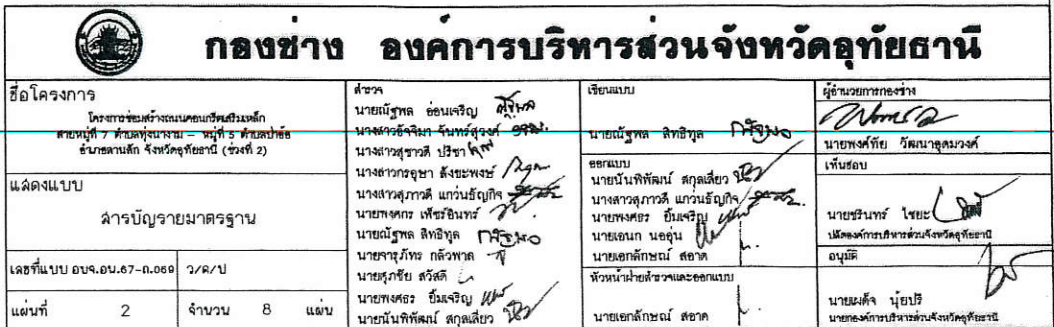 กองช่าง องค์การบริหารส่วนจังหวัดอุทัยธานี
ชื่อโครงการ
โครงการซ่อมสร้างถนนคอนกรีตเสริมเหล็ก
สายหมู่ที่ 7 ตำบลทุ่งนางาม – หมู่ที่ 5 ตำบลป่าอ้อ
อำเภอลานสัก จังหวัดอุทัยธานี (ช่วงที่ 2)
แสดงแบบ
สารบัญรายมาตรฐาน
เลขที่แบบ อบจ.อน.67-ถ.069 ว/ด/ป
แผ่นที่ 2 จำนวน 8 แผ่น
สำรวจ
นายณัฐพล อ่อนเจริญ
นางสาวอัจจิมา จันทร์สุวงศ์
นางสาวสุชาวดี ปรีชา
นางสาวกรอุษา สังขะพงษ์
นางสาวสุภาวดี แก่นธัญกิจ
นายพงศกร เพ็ชรอินทร์
นายณัฐพล สิทธิทูล
นายจารุภัทร กลัวพาล
นายศุภชัย สวัสดี
นายพงศธร ยิ้มเจริญ
นายนันพิพัฒน์ สกุลเสี่ยว
เขียนแบบ
นายณัฐพล สิทธิทูล
ออกแบบ
นายนันพิพัฒน์ สกุลเสี่ยว
นางสาวสุภาวดี แก่นธัญกิจ
นายพงศธร ยิ้มเจริญ
นายเอนก นออุ่น
นายเอกลักษณ์ สอาด
หัวหน้าฝ่ายสำรวจและออกแบบ
นายเอกลักษณ์ สอาด
ผู้อำนวยการกองช่าง
นายพงศ์ทัย วัฒนาอุดมวงศ์
เห็นชอบ
นายชรินทร์ ไชยะ
ปลัดองค์การบริหารส่วนจังหวัดอุทัยธานี
อนุมัติ
นายเผด็จ นุ้ยปรี
นายกองค์การบริหารส่วนจังหวัดอุทัยธานี